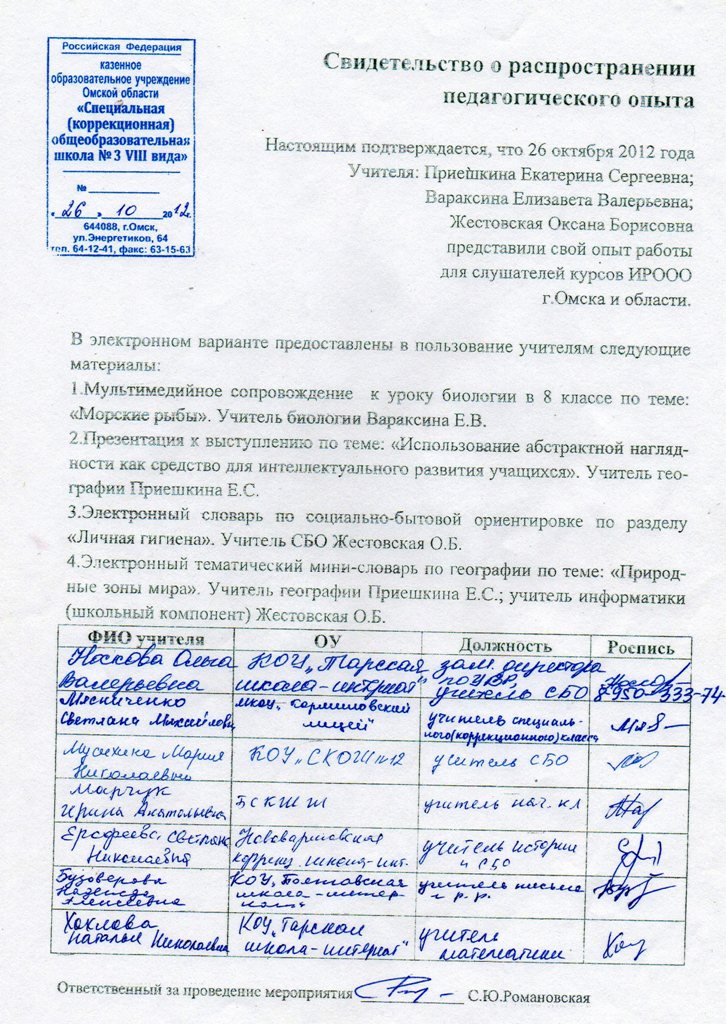 Российская Федерация
казенное
образовательное учреждение
Омской области
«Специальная
(коррекционная)
общеобразовательная
школа №3 VIII вида»
№
«26» 10 2012г.
644088, г.Омск,
ул.Энергетиков, 64
тел. 64-12-41, факс: 63-15-63
Свидетельство о распространении
педагогического опыта
Настоящим подтверждается, что 26 октября 2012 года
Учителя: Приешкина Екатерина Сергеевна;
Вараксина Елизавета Валерьевна;
Жестовская Оксана Борисовна
представили свой опыт работы
для слушателей курсов ИРООО
г.Омска и области.
В электронном варианте предоставлены в пользование учителям следующие
материалы:
1.Мультимедийное сопровождение к уроку биологии в 8 классе по теме:
«Морские рыбы». Учитель биологии Вараксина Е.В.
2.Презентация к выступлению по теме: «Использование абстрактной нагляд-
ности как средство для интеллектуального развития учащихся». Учитель гео-
графии Приешкина Е.С.
3.Электронный словарь по социально-бытовой ориентировке по разделу
«Личная гигиена». Учитель СБО Жестовская О.Б.
4.Электронный тематический мини-словарь по географии по теме: «Природ-
ные зоны мира». Учитель географии Приешкина Е.С.; учитель информатики
(школьный компонент) Жестовская О.Б.
ФИО учителя ОУ Должность Роспись
Носкова Ольга КОУ „Тарская зам. директора
Валерьевна школа-интернат" по УВР, учитель СБО 8-950-333-74-
Мясниченко МКОУ „Кормиловский учитель специаль-
Светлана Михайловна лицей" ного(коррекционного) класса
Мусихина Мария КОУ „СКОШ №12 учитель СБО
Николаевна
Марчук
Ирина Анатольевна БСКШИ учитель нач. кл
Ерофеева Светлана Нововаршавская учитель истории
Николаевна коррекц. школа-инт. и СБО
Бузоверова КОУ „Полтавская учитель письма
Надежда школа-интер- и р.р.
Алексеевна нат"
Хохлова КОУ „Тарская учитель
Наталья Николаевна школа-интернат" математики
Ответственный за проведение мероприятия С.Ю.Романовская